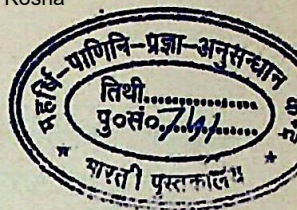 Kosha
महर्षि-पाणिनि-प्रज्ञा-अनुसन्धान
तिथी............
पु०सं०741............
भारती पुस्तकालय